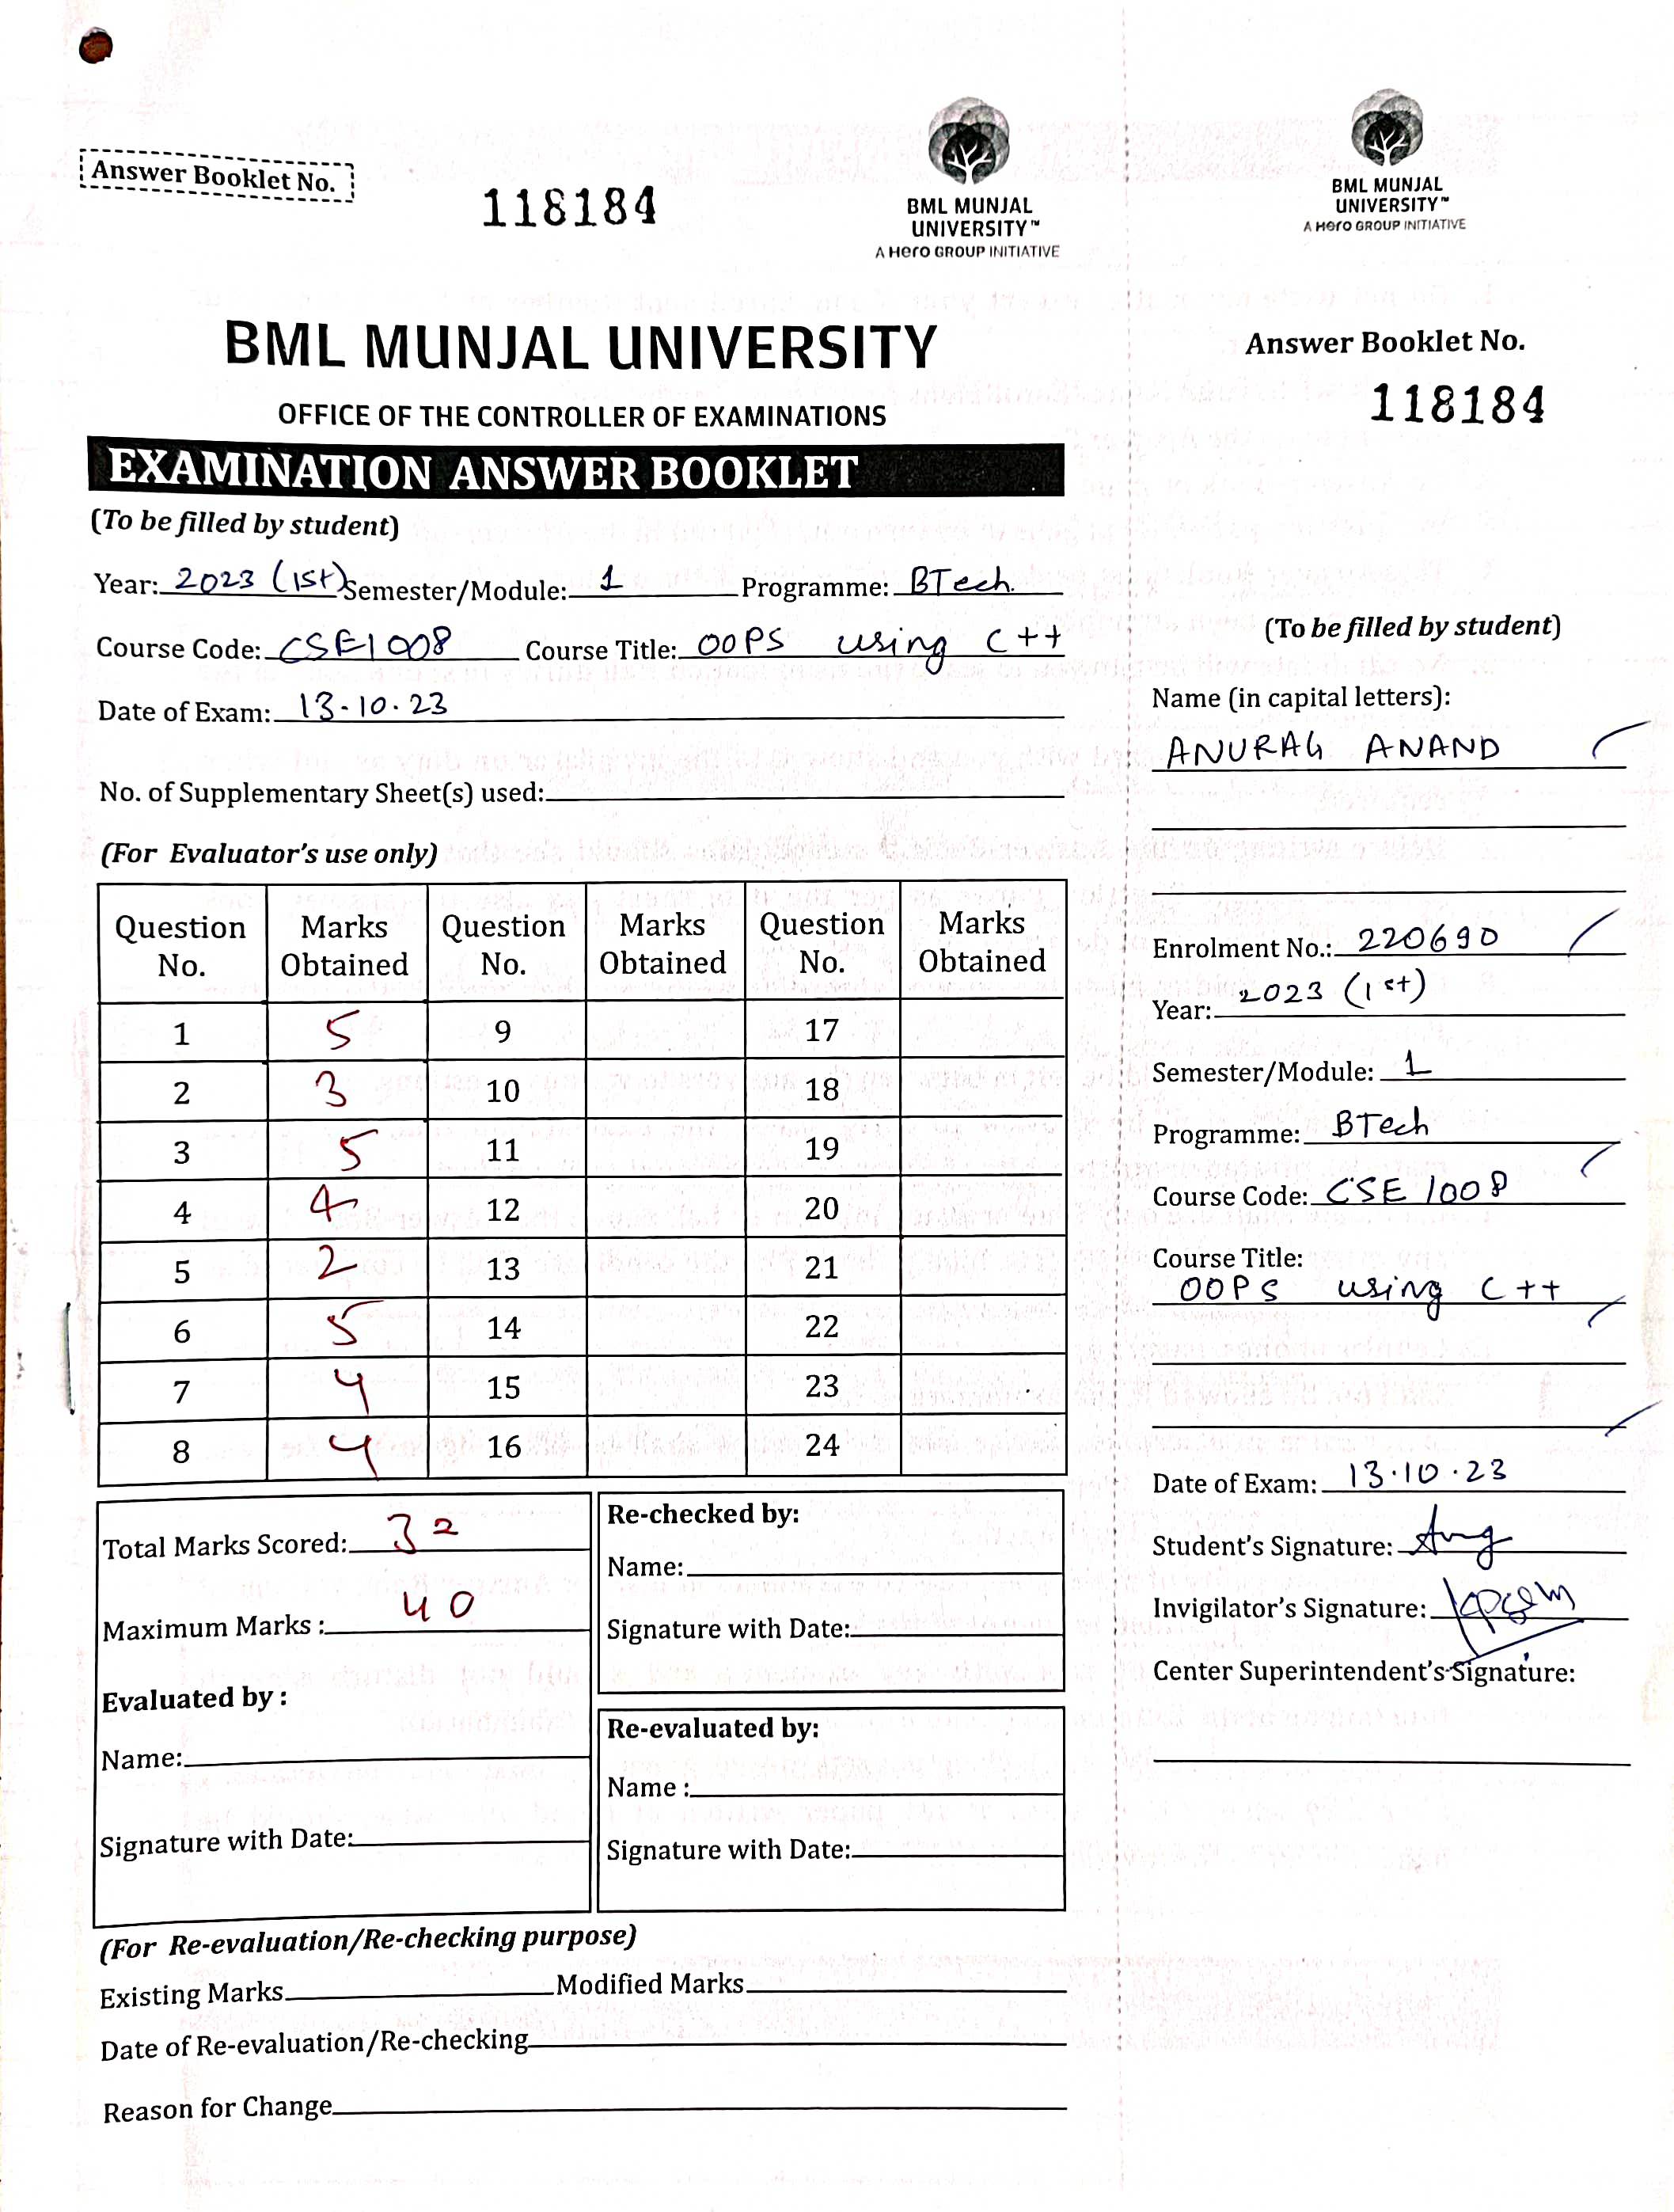 Answer Booklet No.
118184
BML MUNJAL
UNIVERSITY™
A Hero GROUP INITIATIVE
BML MUNJAL UNIVERSITY
OFFICE OF THE CONTROLLER OF EXAMINATIONS
EXAMINATION ANSWER BOOKLET
(To be filled by student)
Year: 2023 (1st) Semester/Module: 1 Programme: BTech.
Course Code: CSE1008 Course Title: OOPS using C++
Date of Exam: 13.10.23
No. of Supplementary Sheet(s) used:
(For Evaluator's use only)
Question No. Marks Obtained Question No. Marks Obtained Question No. Marks Obtained
1 5 9 17
2 3 10 18
3 5 11 19
4 4 12 20
5 2 13 21
6 5 14 22
7 4 15 23
8 4 16 24
Total Marks Scored: 32
Maximum Marks : 40
Evaluated by :
Name:
Signature with Date:
Re-checked by:
Name:
Signature with Date:
Re-evaluated by:
Name :
Signature with Date:
(For Re-evaluation/Re-checking purpose)
Existing Marks Modified Marks
Date of Re-evaluation/Re-checking
Reason for Change
BML MUNJAL
UNIVERSITY™
A Hero GROUP INITIATIVE
Answer Booklet No.
118184
(To be filled by student)
Name (in capital letters):
ANURAG ANAND
Enrolment No.: 220690
Year: 2023 (1st)
Semester/Module: 1
Programme: BTech
Course Code: CSE 1008
Course Title:
OOPS using C++
Date of Exam: 13.10.23
Student's Signature:
Invigilator's Signature:
Center Superintendent's Signature: